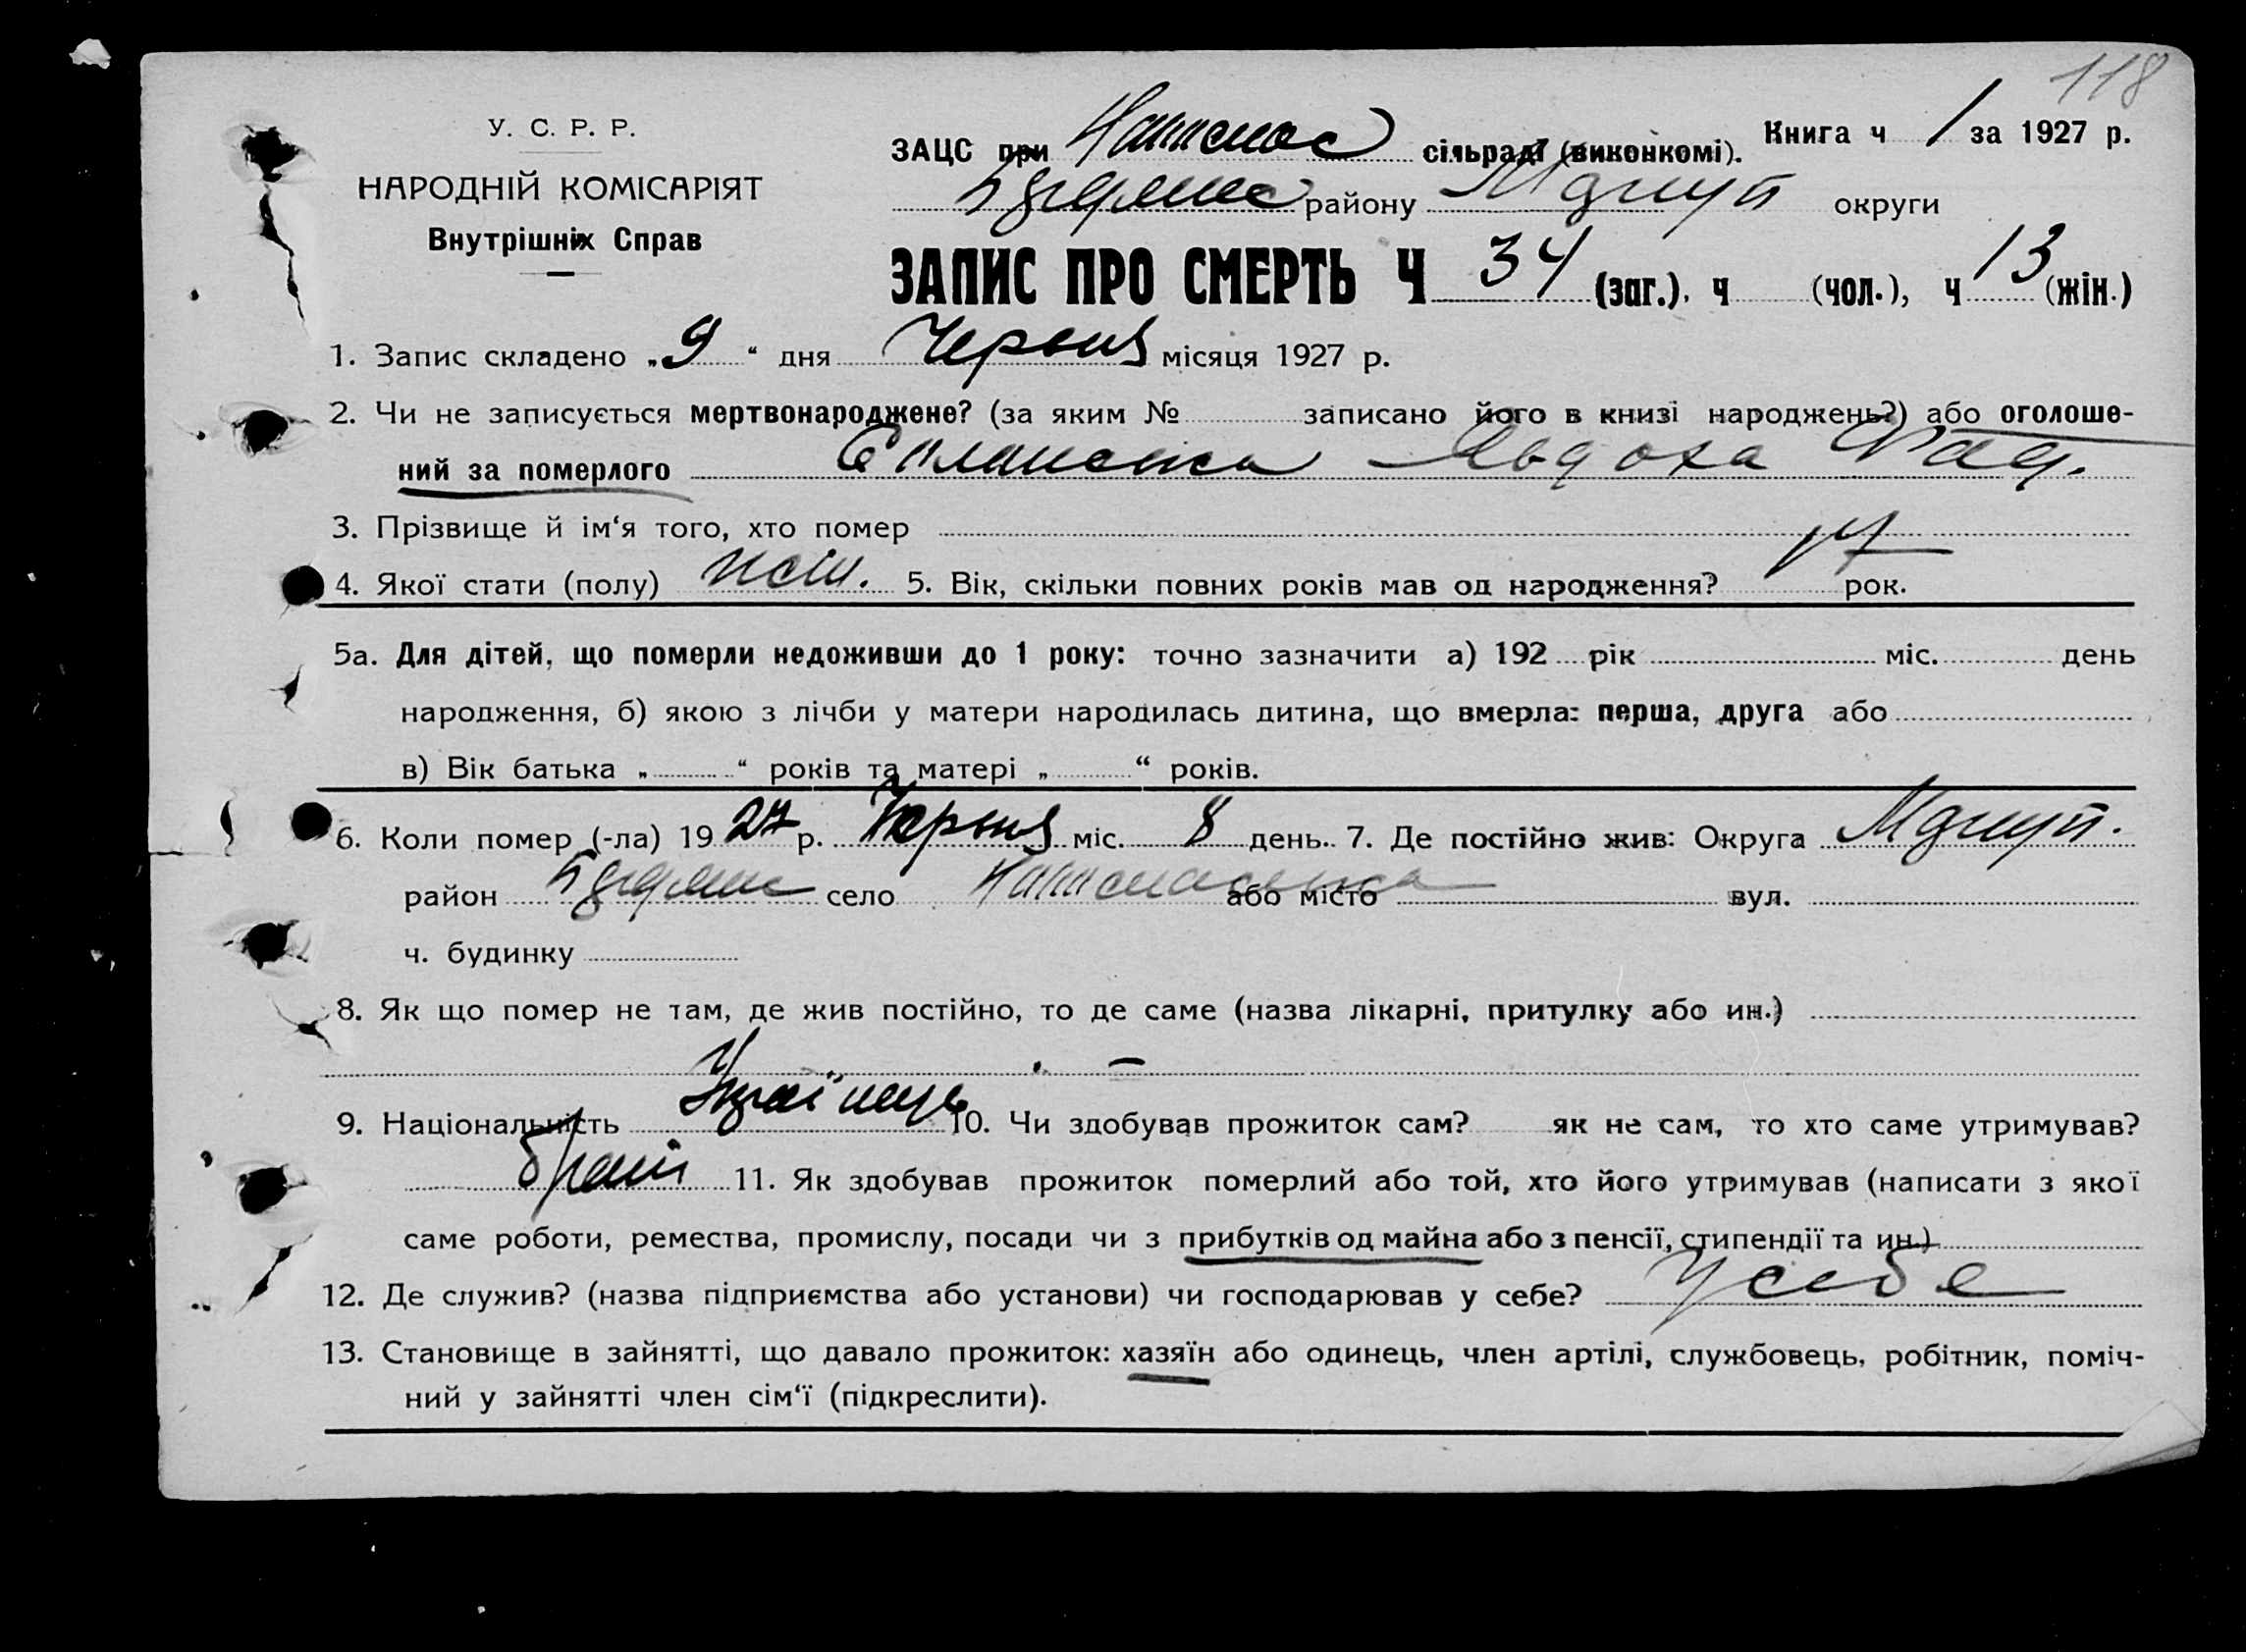 118
У. С. Р. Р.
НАРОДНІЙ КОМІСАРІЯТ
Внутрішніх Справ
ЗАЦС при сільраді (виконкомі). Книга ч 1 за 1927 р.
району округи
ЗАПИС ПРО СМЕРТЬ Ч 34 (заг.), ч (чол.), ч 13 (жін.)
1. Запис складено „9“ дня Червня місяця 1927 р.
2. Чи не записується мертвонароджене? (за яким № записано його в книзі народжень?) або оголоше-
ний за померлого Явдоха
3. Прізвище й ім‘я того, хто помер
4. Якої стати (полу) 5. Вік, скільки повних років мав од народження? рок.
5а. Для дітей, що померли недоживши до 1 року: точно зазначити а) 192 рік міс. день
народження, б) якою з лічби у матери народилась дитина, що вмерла: перша, друга або
в) Вік батька „ “ років та матері „ “ років.
6. Коли помер (-ла) 1927 р. Червня міс. 8 день. 7. Де постійно жив: Округа
район село або місто вул.
ч. будинку
8. Як що помер не там, де жив постійно, то де саме (назва лікарні, притулку або ин.)
–
9. Національність Українець 10. Чи здобував прожиток сам? як не сам, то хто саме утримував?
брат 11. Як здобував прожиток померлий або той, хто його утримував (написати з якої
саме роботи, ремества, промислу, посади чи з прибутків од майна або з пенсії, стипендії та ин.)
12. Де служив? (назва підприємства або установи) чи господарював у себе? У себе
13. Становище в зайнятті, що давало прожиток: хазяїн або одинець, член артілі, службовець, робітник, поміч-
ний у зайнятті член сім‘ї (підкреслити).